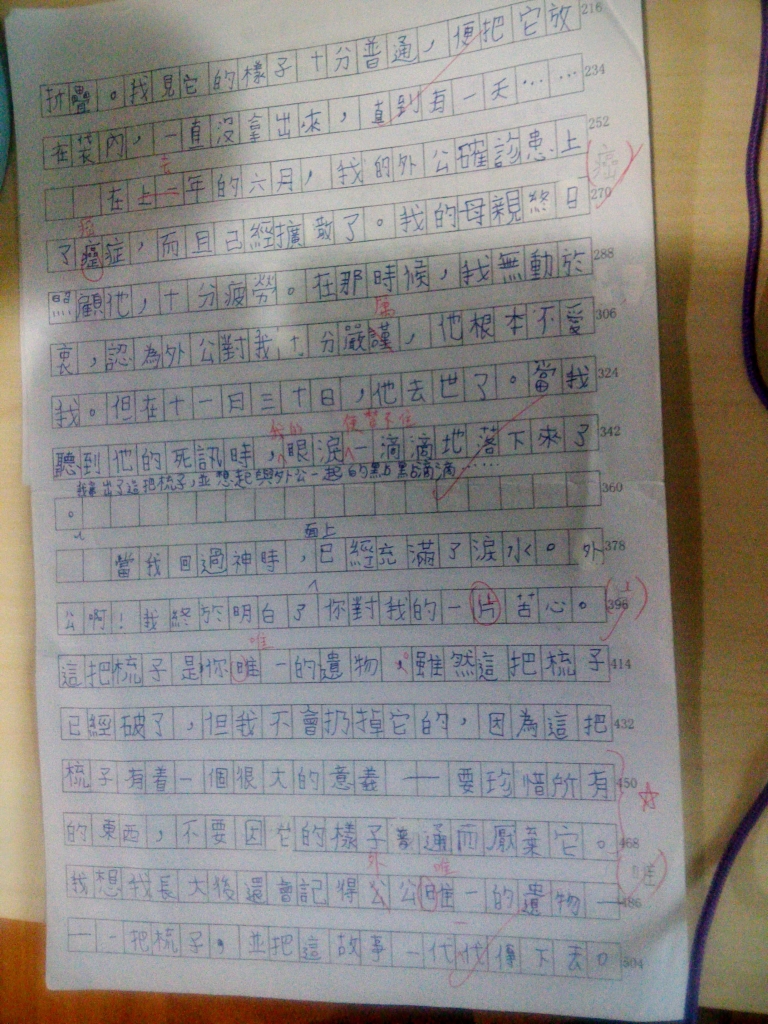 折疊。我見它的樣子十分普通，便把它放 216
在袋內，一直沒拿出來，直到有一天…… 234
去
在上一年的六月，我的外公確診患上 252
癌
癌
了癌症，而且已經擴散了。我的母親終日 270
照顧他，十分疲勞。在那時候，我無動於 288
厲
衷，認為外公對我十分嚴謹，他根本不愛 306
我。但在十一月三十日，他去世了。當我 324
我的 便禁不住
聽到他的死訊時，眼淚一滴滴地落下來了 342
我拿出了這把梳子，並想起與外公一起的點點滴滴……
。 360
面上
當我回過神時，已經充滿了淚水。外 378
公啊！我終於明白了你對我的一片苦心。 396
唯
這把梳子是你唯一的遺物，雖然這把梳子 414
已經破了，但我不會扔掉它的，因為這把 432
梳子有着一個很大的意義——要珍惜所有 450
的東西，不要因它的樣子普通而厭棄它。 468
外 唯
唯
我想我長大後還會記得公公唯一的遺物— 486
—一把梳子，並把這故事一代代傳下去。 504